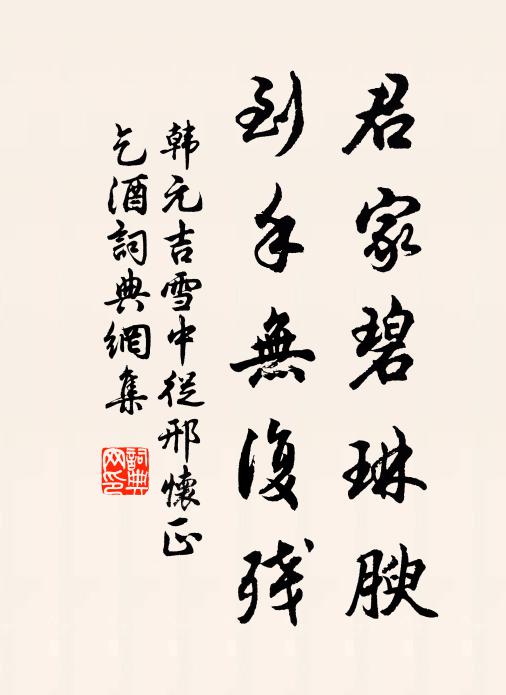 君家碧琳腴
到手無復残
韩元吉雪中從邢懷正
乞酒詞典網集
詞典
网印